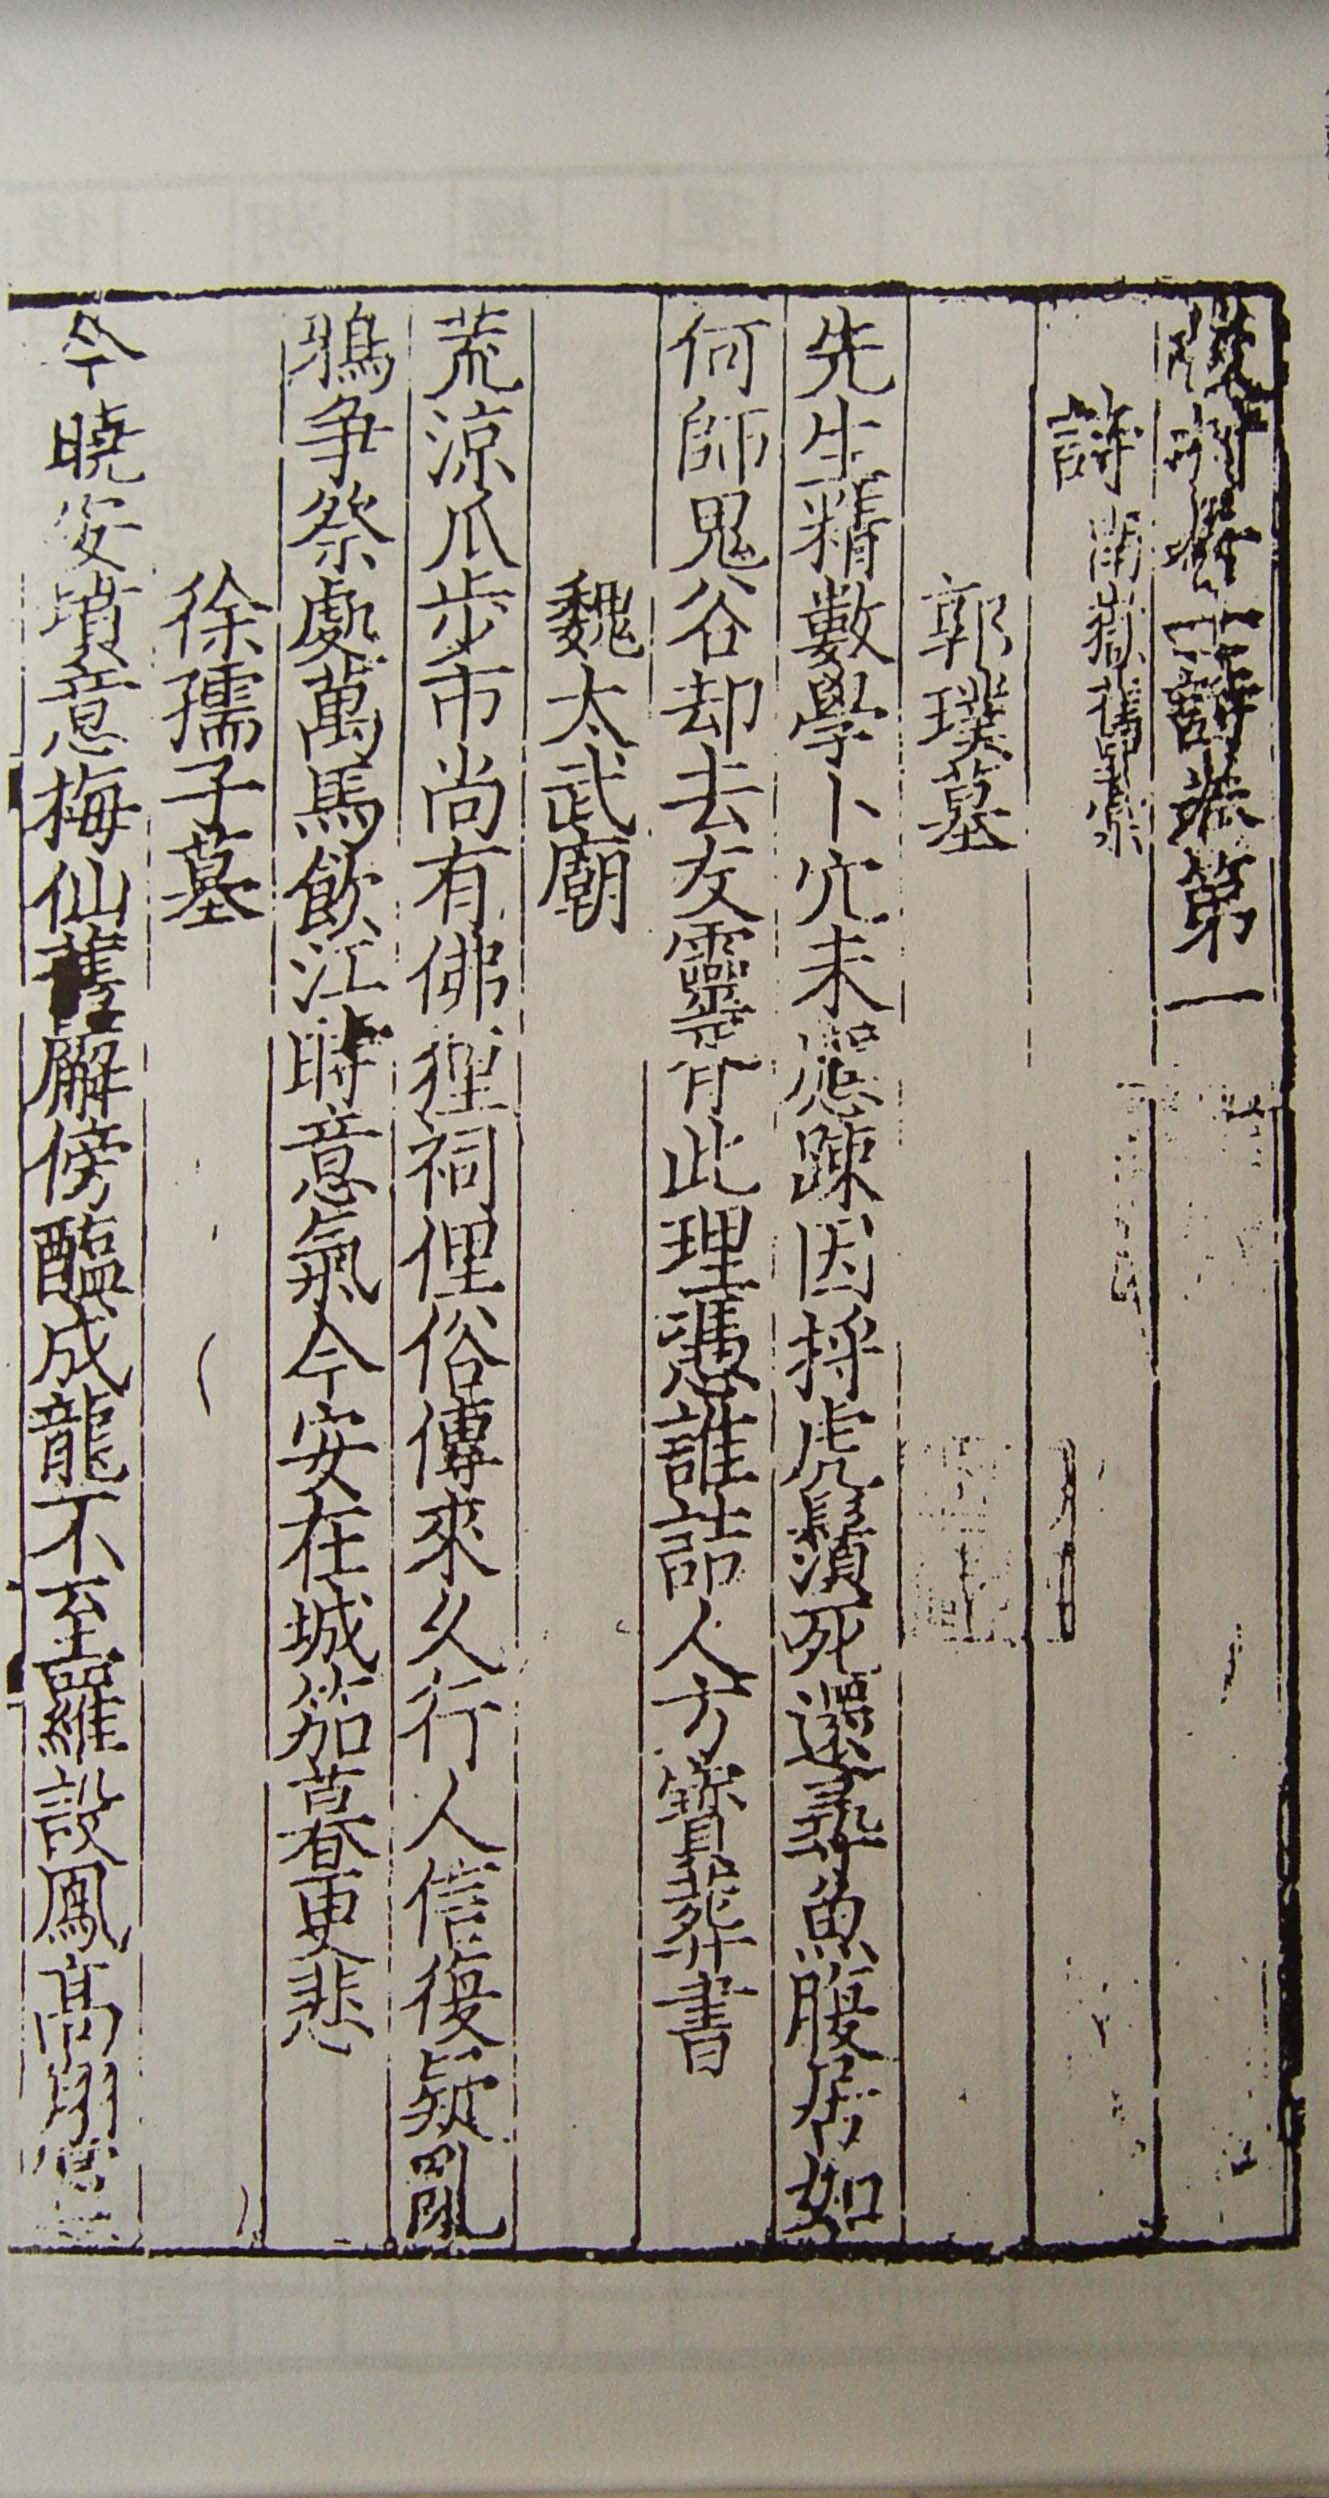 後村居士詩卷第一
詩 南嶽舊稾
郭璞墓
先生精數學卜穴未應踈因捋虎鬚死還尋魚腹居如
何師鬼谷却去友靈胥此理憑誰詰人方寶葬書
魏太武廟
荒涼瓜步市尚有佛狸祠俚俗傳來久行人信復疑亂
鴉爭祭處萬馬飲江時意氣今安在城笳暮更悲
徐孺子墓
今曉安墳意梅仙舊廨傍醢成龍不至羅設鳳高翔